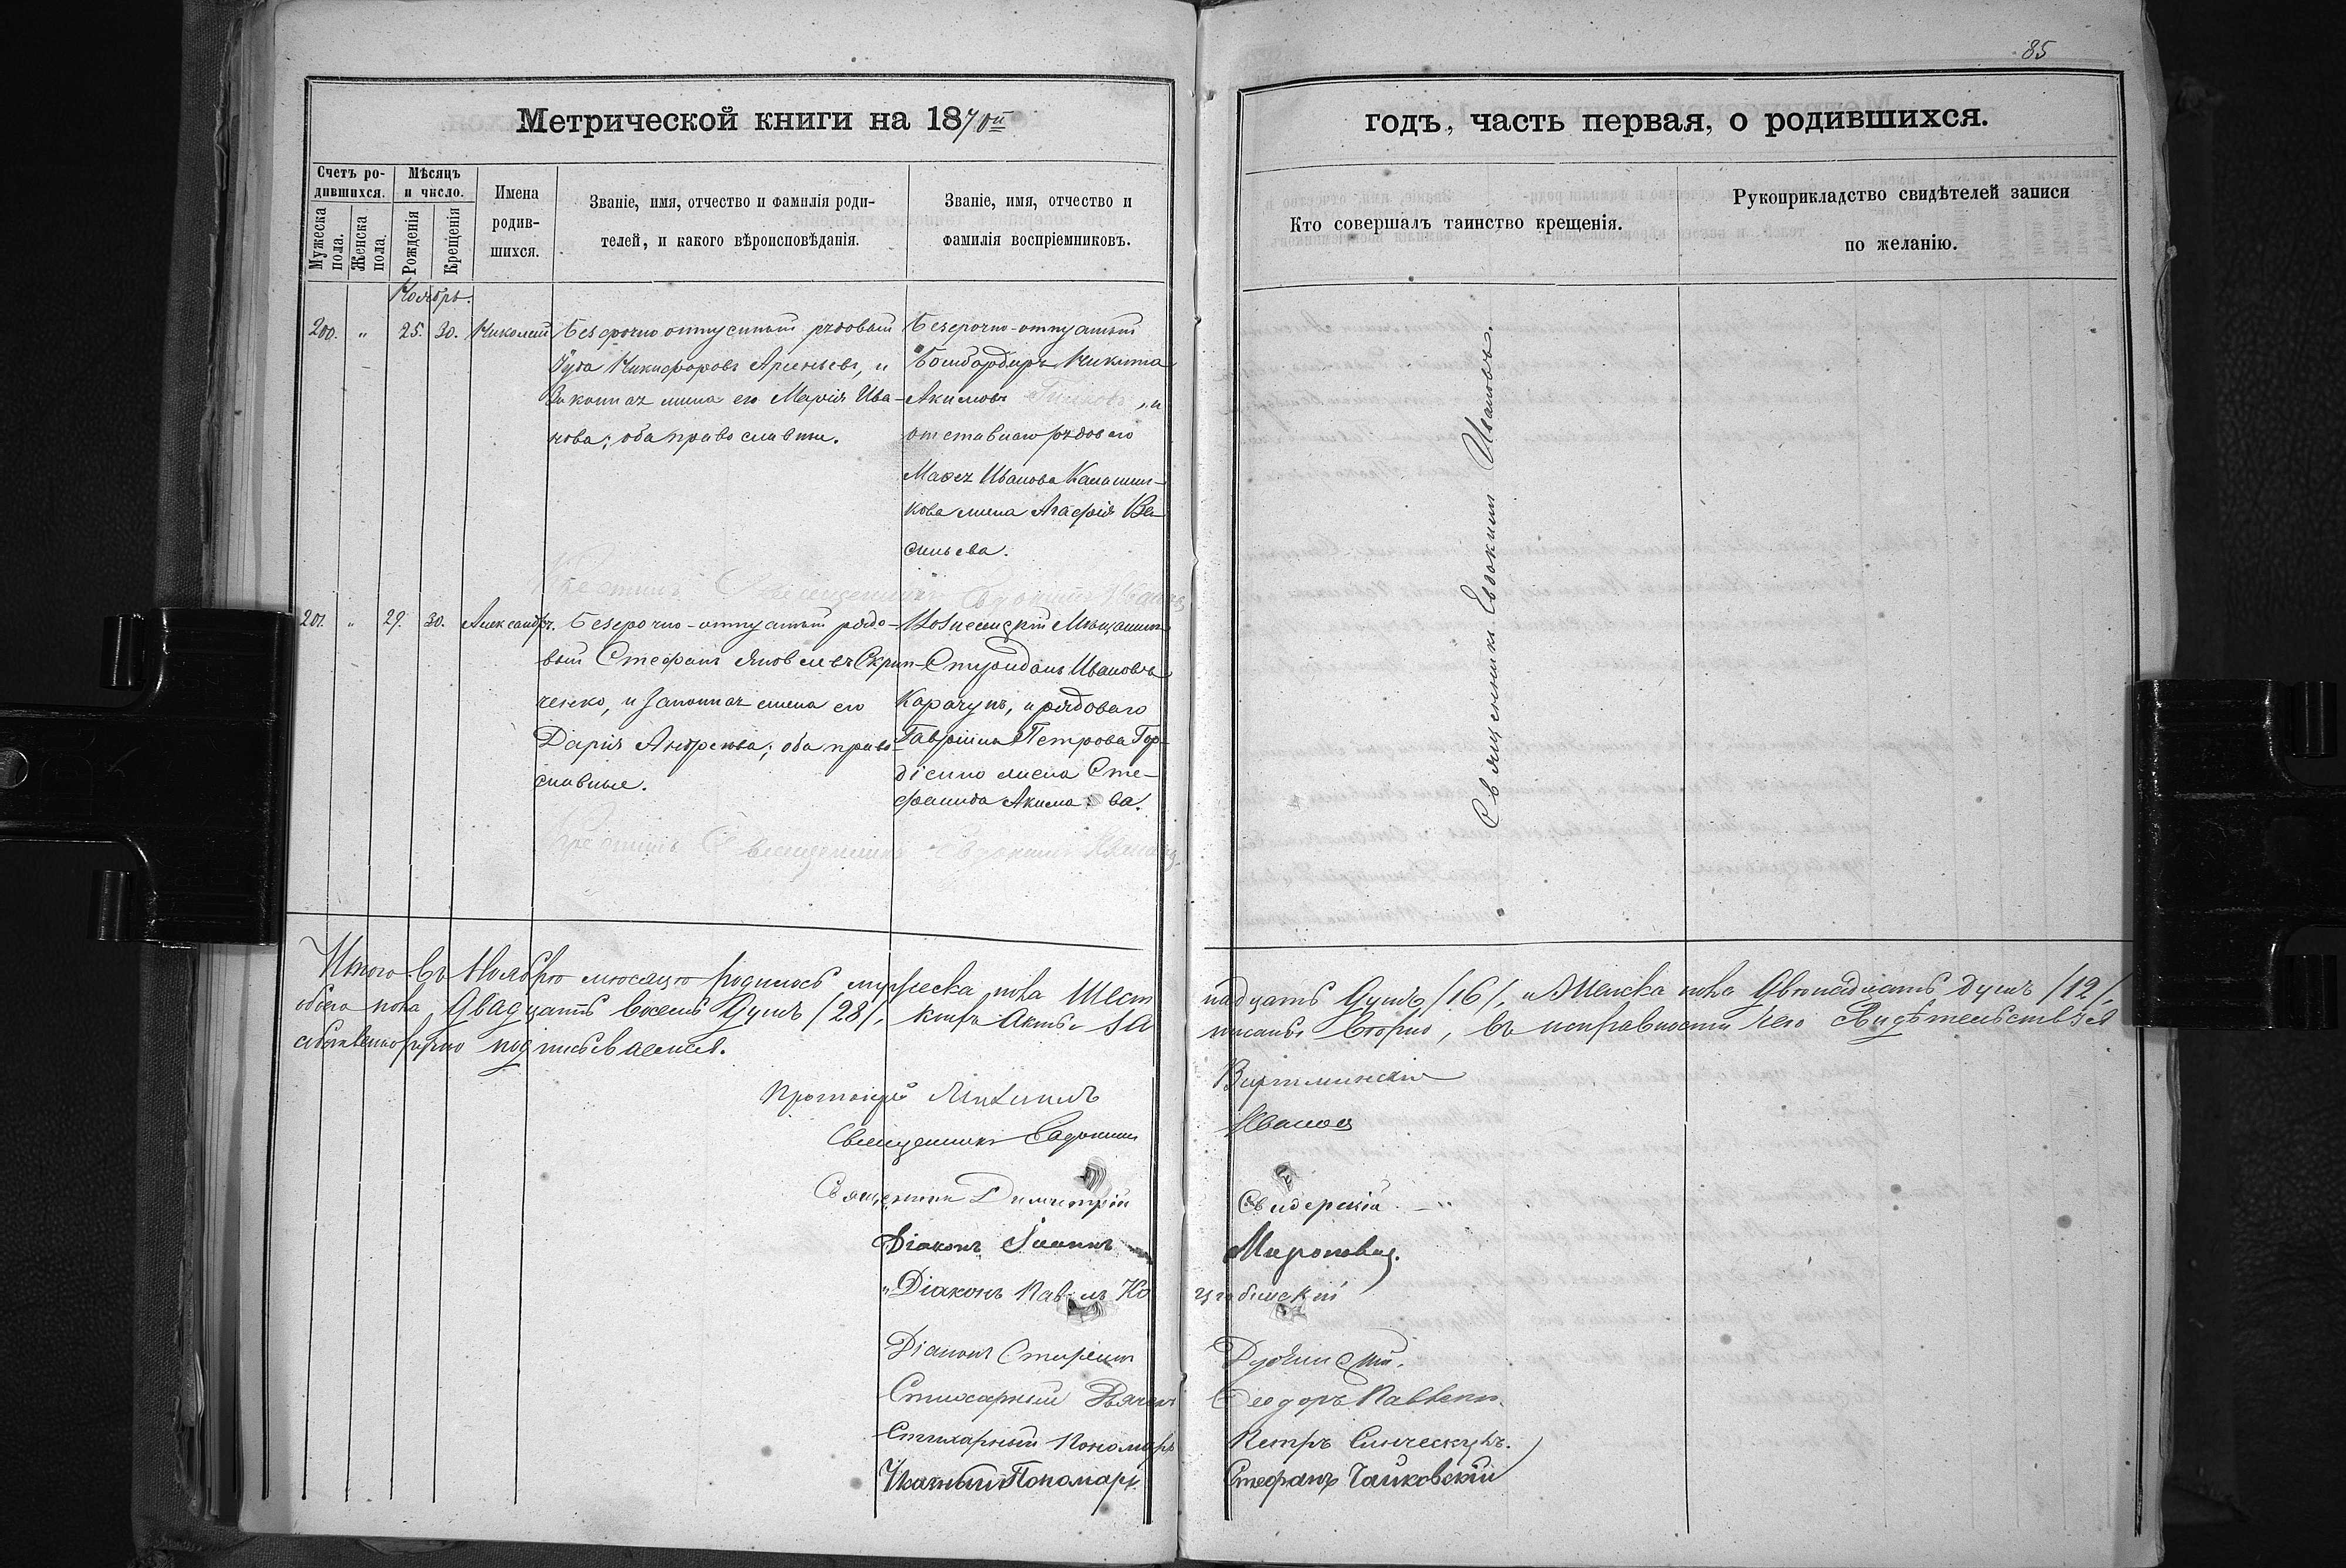 85
Метрической книги на 1870й
годъ, часть первая, о родившихся.
Счетъ ро-
дившихся.
Мужеска
пола.
Женска
пола.
Мѣсяцъ
и число.
Рожденія
Крещенія
Имена
родив-
шихся.
Званіе, имя, отчество и фамилія роди-
телей, и какого вѣроисповѣданія.
Званіе, имя, отчество и
фамилія воспріемниковъ.
Кто совершалъ таинство крещенія.
Рукоприкладство свидѣтелей записи
по желанію.
Ноябрь.
200. " 25. 30. Николай
Безсрочно отпускный рядовый
Іуда Никифоровъ Арсеньевъ, и
законная жена его Марія Ива-
нова; оба православные.
Безсрочно-отпускный
Бомбардиръ Никита
Акимовъ , и
отставнаго рядоваго
Ивана Калашни-
кова жена Агафія Ва-
сильева.
Крестилъ Священникъ Евдокимъ Ивановъ
201. " 29. 30. Александръ.
Безсрочно-отпускный рядо-
вый Стефанъ Яковлевъ Скрип-
ченко, и законная жена его
Дарія Андреева; оба право-
славные.
Вознесенскій Мѣщанинъ
Спиридонъ Ивановъ
Карачунъ, и рядоваго
Гавріила Петрова Гор-
діенко жена Сте-
фанида Акимова.
Крестилъ Священникъ Евдокимъ Ивановъ
Священникъ Евдокимъ Ивановъ.
Итого въ Ноябрѣ мѣсяцѣ родилось мужеска пола Шест
надцать Душъ /16/, и Женска пола Двѣнадцать душъ /12/,
обоего пола Двадцать восемь Душъ /28/, Акты За
писаны вѣрно, въ исправности чего Свидѣтельствуя
собственноручно подписываемся.
Протоіерей Михаилъ
Священникъ Евдокимъ Ивановъ
Священникъ Димитрій Свидерскій
Діаконъ Іоаннъ Мироновичъ.
Діаконъ Павелъ Ко цюбинскій
Діаконъ
Стихарный Дьячекъ Ѳеодоръ
Стихарный Пономарь Петръ
Указный Пономарь Стефанъ Чайковскій